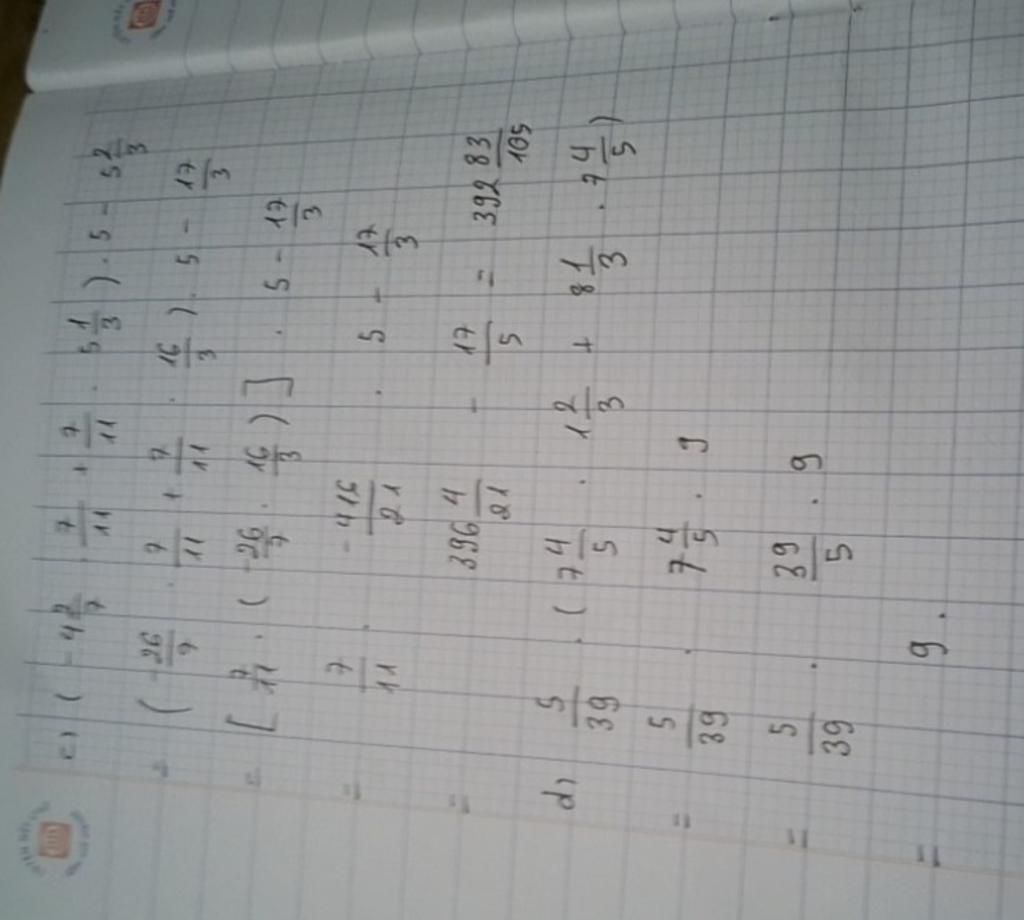 c) ( - 4 2/7 . 7/11 + 7/11 . 5 1/3 ) . 5 - 5 2/3
= ( - 26/7 . 7/11 + 7/11 . 16/3 ) . 5 - 17/3
= [ 7/11 . ( - 26/7 . 16/3 ) ] . 5 - 17/3
= 7/11 . - 416/21 . 5 - 17/3
= 396 4/21 - 17/5 = 392 83/105
d) 5/39 . ( 7 4/5 . 1 2/3 + 8 1/3 . 7 4/5 )
= 5/39 . 7 4/5 . 9
= 5/39 . 39/5 . 9
= 9 .